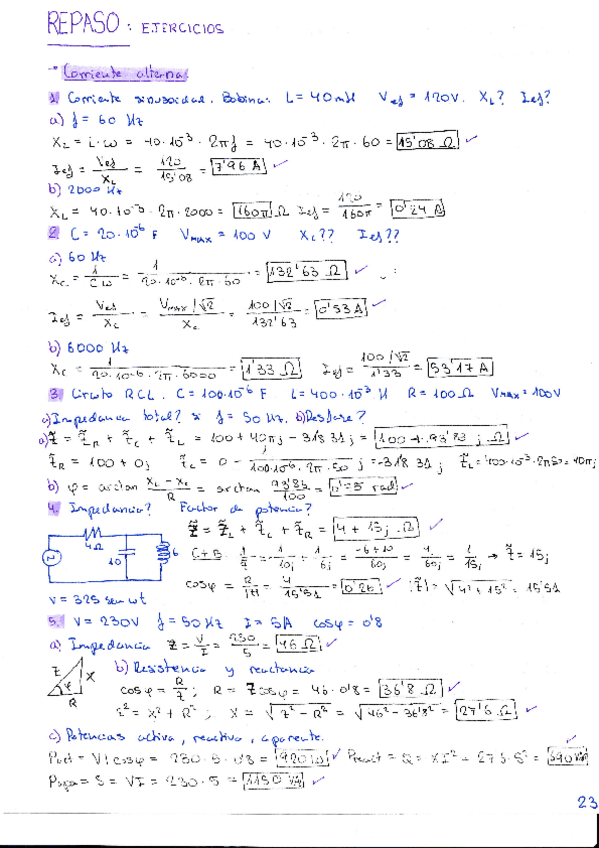 REPASO: EJERCICIOS
Corriente alterna:
1. Corriente sinusoidal. Bobina: L = 40 mH Vef = 120V. XL? Ief?
a) f = 60 Hz
XL = L·ω = 40·10⁻³ · 2πf = 40·10⁻³ · 2π · 60 = 15'08 Ω
Ief = Vef/XL = 120/15'08 = 7'96 A
b) 2000 Hz
XL = 40·10⁻³ · 2π · 2000 = 160π Ω Ief = 120/160π = 0'24 A
2. C = 20·10⁻⁶ F Vmax = 100 V Xc?? Ief??
a) 60 Hz
Xc = 1/Cω = 1/20·10⁻⁶·2π·60 = 132'63 Ω
Ief = Vef/Xc = Vmax/√2/Xc = 100/√2/132'63 = 0'53 A
b) 6000 Hz
Xc = 1/20·10⁻⁶·2π·6000 = 1'33 Ω Ief = 100/√2/1'33 = 53'17 A
3. Circuito RCL. C = 100·10⁻⁶ F L = 400·10⁻³ H R = 100Ω Vmax = 100V
a) Impedancia total? si f = 50 Hz. b) Desfase?
a) Z̃ = Z̃R + Z̃C + Z̃L = 100 + 40πj - 31'831j = 100 + 93'83 j Ω
Z̃R = 100 + 0j Z̃C = 0 - j/100·10⁻⁶·2π·50 = -31'831j Z̃L = 400·10⁻³·2π50 = 40πj
b) φ = arctan XL - Xc/R = arctan 93'83/100 = rad
4. Impedancia? Factor de potencia?
Z̃ = Z̃L + Z̃C + Z̃R = 4 + 15j Ω
4Ω 10 6
C+B: 1/Z̃ = -1/10j + 1/6j = -6+10/60j = 4/60j = 1/15j → Z̃ = 15j
cosφ = R/|Z| = 4/15'51 = 0'26 |Z̃| = √4²+15² = 15'51
v = 325 sen ωt
5. V = 230V f = 50Hz I = 5A cosφ = 0'8
a) Impedancia Z = V/I = 230/5 = 46 Ω
b) Resistencia y reactancia
Z X φ R
cosφ = R/Z ; R = Z cosφ = 46·0'8 = 36'8 Ω
Z² = X² + R² ; X = √Z² - R² = √46² - 36'8² = 27'6 Ω
c) Potencias activa, reactiva, aparente.
Pact = VIcosφ = 230·5·0'8 = 920 W Preact = Q = XI² = 27'6·5² = 690
Papa = S = VI = 230·5 = 1150 VA
23